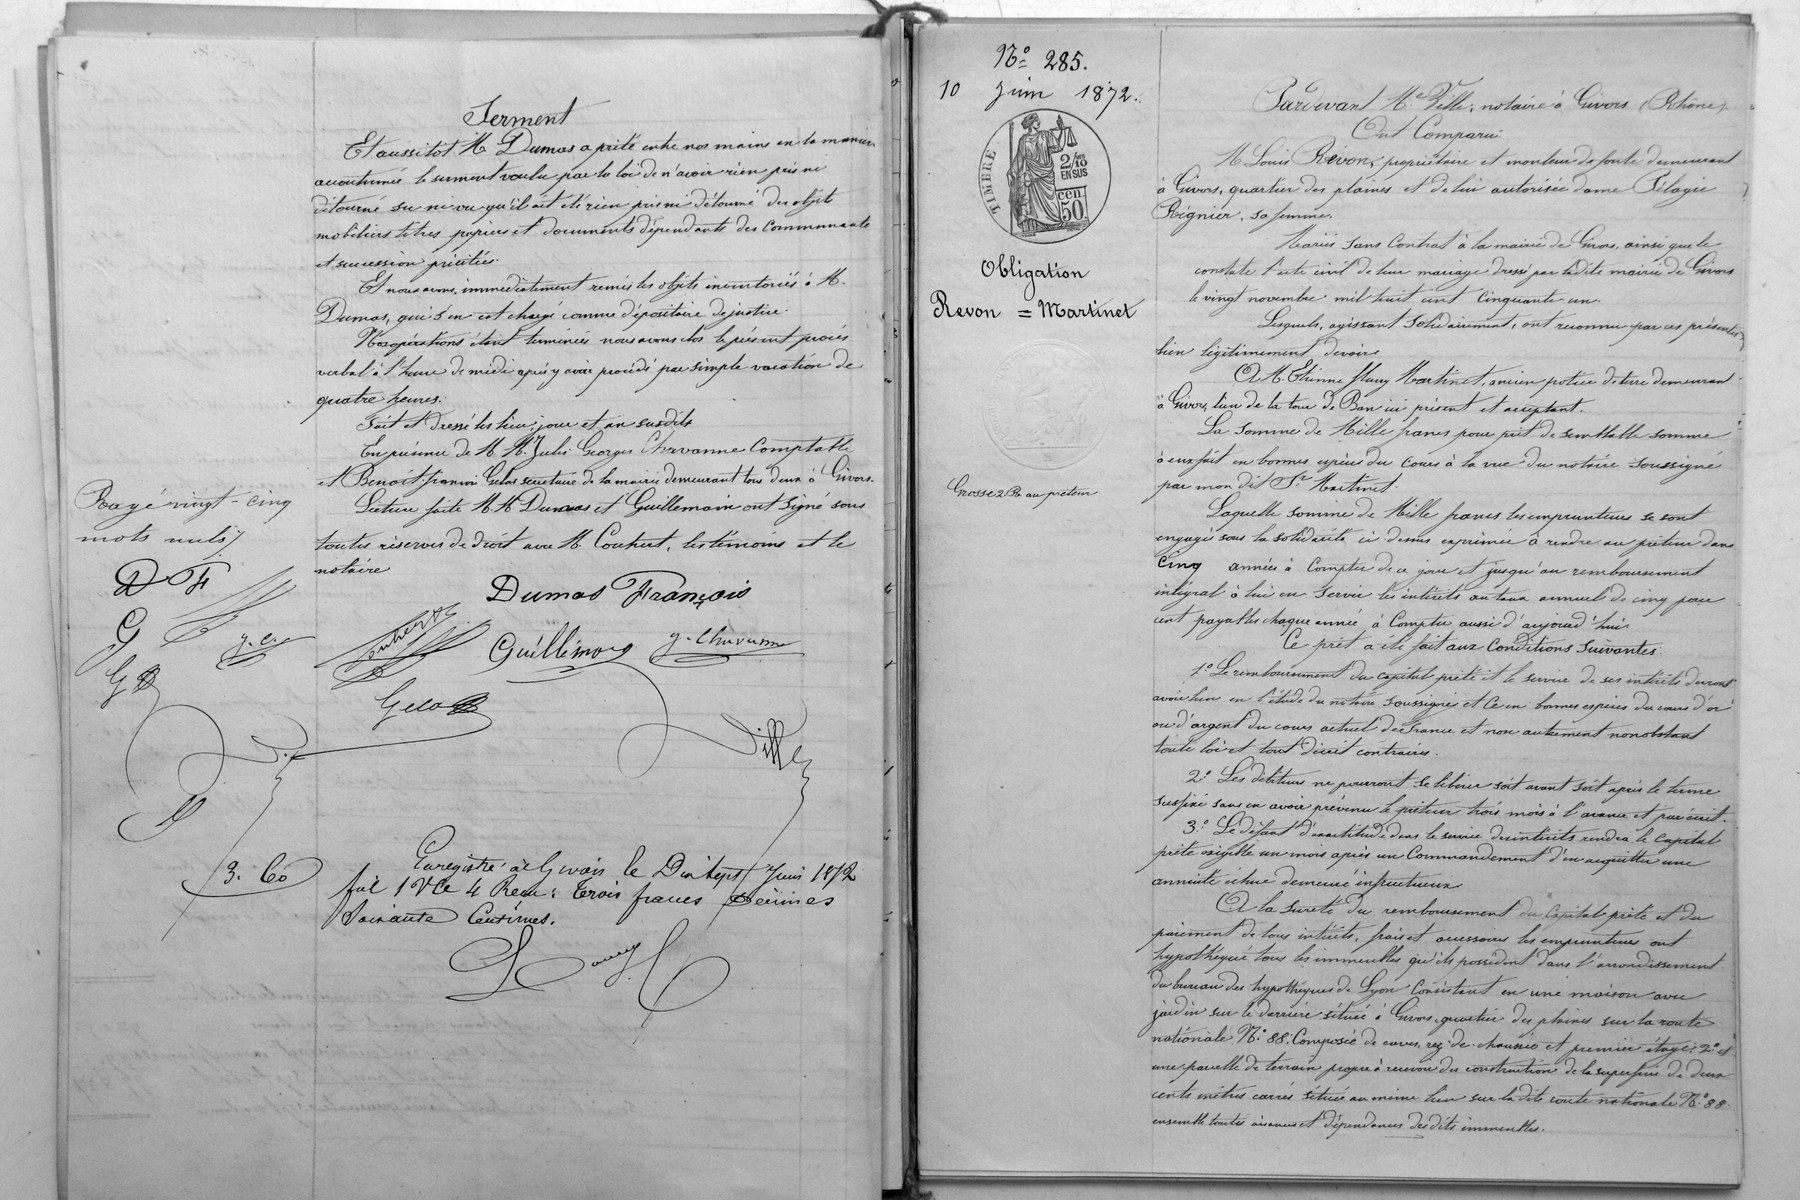 Serment
Et aussitot M. Dumas a prêté entre nos mains en la manière
accoutumée le serment voulu par la loi de n'avoir rien pris ni
détourné su ni vu qu'il ait été rien pris ni détourné des objets
mobiliers titres papiers et documents dépendants des communauté
et succession précitées.
Et nous avons immédiatement remis les objets inventoriés à M.
Dumas, qui s'en est chargé comme dépositaire de justice.
Nos opérations étant terminées nous avons clos le présent procès
verbal à l'heure de midi après y avoir procédé par simple vacation de
quatre heures.
Fait et dressé les lieu, jour et an susdits
En présence de M. M. Jules Georges Chavanne Comptable
et Benoit Gelas secrétaire de la mairie demeurant tous deux à Givors.
Lecture faite M. M. Dumas et Guillemain ont signé sous
toutes réserves de droit avec M. Couhert, les témoins et le
notaire
Rayé vingt-cinq
mots nuls
D F
G
Dumas François
Guillemain
J. Chavanne
Gelas
Ville
3. 60
Enregistré à Givors le Dix sept Juin 1872
fol 1 Vo Ce 4 Reçu: Trois francs décimes
Soixante Centimes.
No 285.
10 Juin 1872.
TIMBRE
2/10
EN SUS
cen.
50.
Obligation
Revon = Martinet
Grosse au prêteur
Pardevant Me Ville, notaire à Givors (Rhône)
Ont Comparu:
M. Louis Revon, propriétaire et mouleur de fonte demeurant
à Givors, quartier des plaines et de lui autorisée dame Pélagie
Régnier, sa femme,
Mariés sans Contrat à la mairie de Givors, ainsi que le
constate l'acte civil de leur mariage dressé par ladite mairie de Givors
le vingt novembre mil huit cent cinquante un.
Lesquels, agissant Solidairement, ont reconnu par ces présentes
bien légitimement devoir
A M. Etienne Fleury Martinet, ancien potier de terre demeurant
à Givors, lieu de la tour de Ban ici présent et acceptant.
La Somme de Mille francs pour prêt de semblable somme
à eux fait en bonnes espèces du Cours à la vue du notaire soussigné
par mon dit Sr Martinet.
Laquelle somme de Mille francs les emprunteurs se sont
engagés sous la solidarité ci dessus exprimée à rendre au prêteur dans
Cinq années à Compter de ce jour et jusqu'au remboursement
intégral à lui en servir les intérêts au taux annuel de cinq pour
cent payables chaque année à Compter aussi d'aujourd'hui.
Ce prêt a été fait aux Conditions Suivantes.
1o Le remboursement du capital prêté et le service de ses intérêts devront
avoir lieu en l'étude du notaire Soussigné et Ce en bonnes espèces du cours d'or
ou d'argent du cours actuel de France et non autrement nonobstant
toute loi et tout décret contraires.
2o Les débiteurs ne pourront se libérer soit avant soit après le terme
susfixé sans en avoir prévenu le prêteur trois mois à l'avance et par écrit.
3o Le défaut d'exactitude dans le service des intérêts rendra le Capital
prêté exigible un mois après un Commandement d'en acquitter une
annuité échue demeuré infructueux.
A la Sureté du remboursement du Capital prêté et du
paiement de tous intérêts, frais et accessoires les emprunteurs ont
hypothéqué tous les immeubles qu'ils possèdent dans l'arrondissement
du bureau des hypothèques de Lyon Consistant en une maison avec
jardin sur le derrière située à Givors quartier des plaines sur la route
nationale No 88, Composée de caves, rez-de-chaussée et premier étage; 2o et
une parcelle de terrain propre à recevoir des constructions de la superficie de deux
cents mètres carrés située au même lieu sur la dite route nationale No 88.
ensemble toutes aisances et dépendances des dits immeubles.